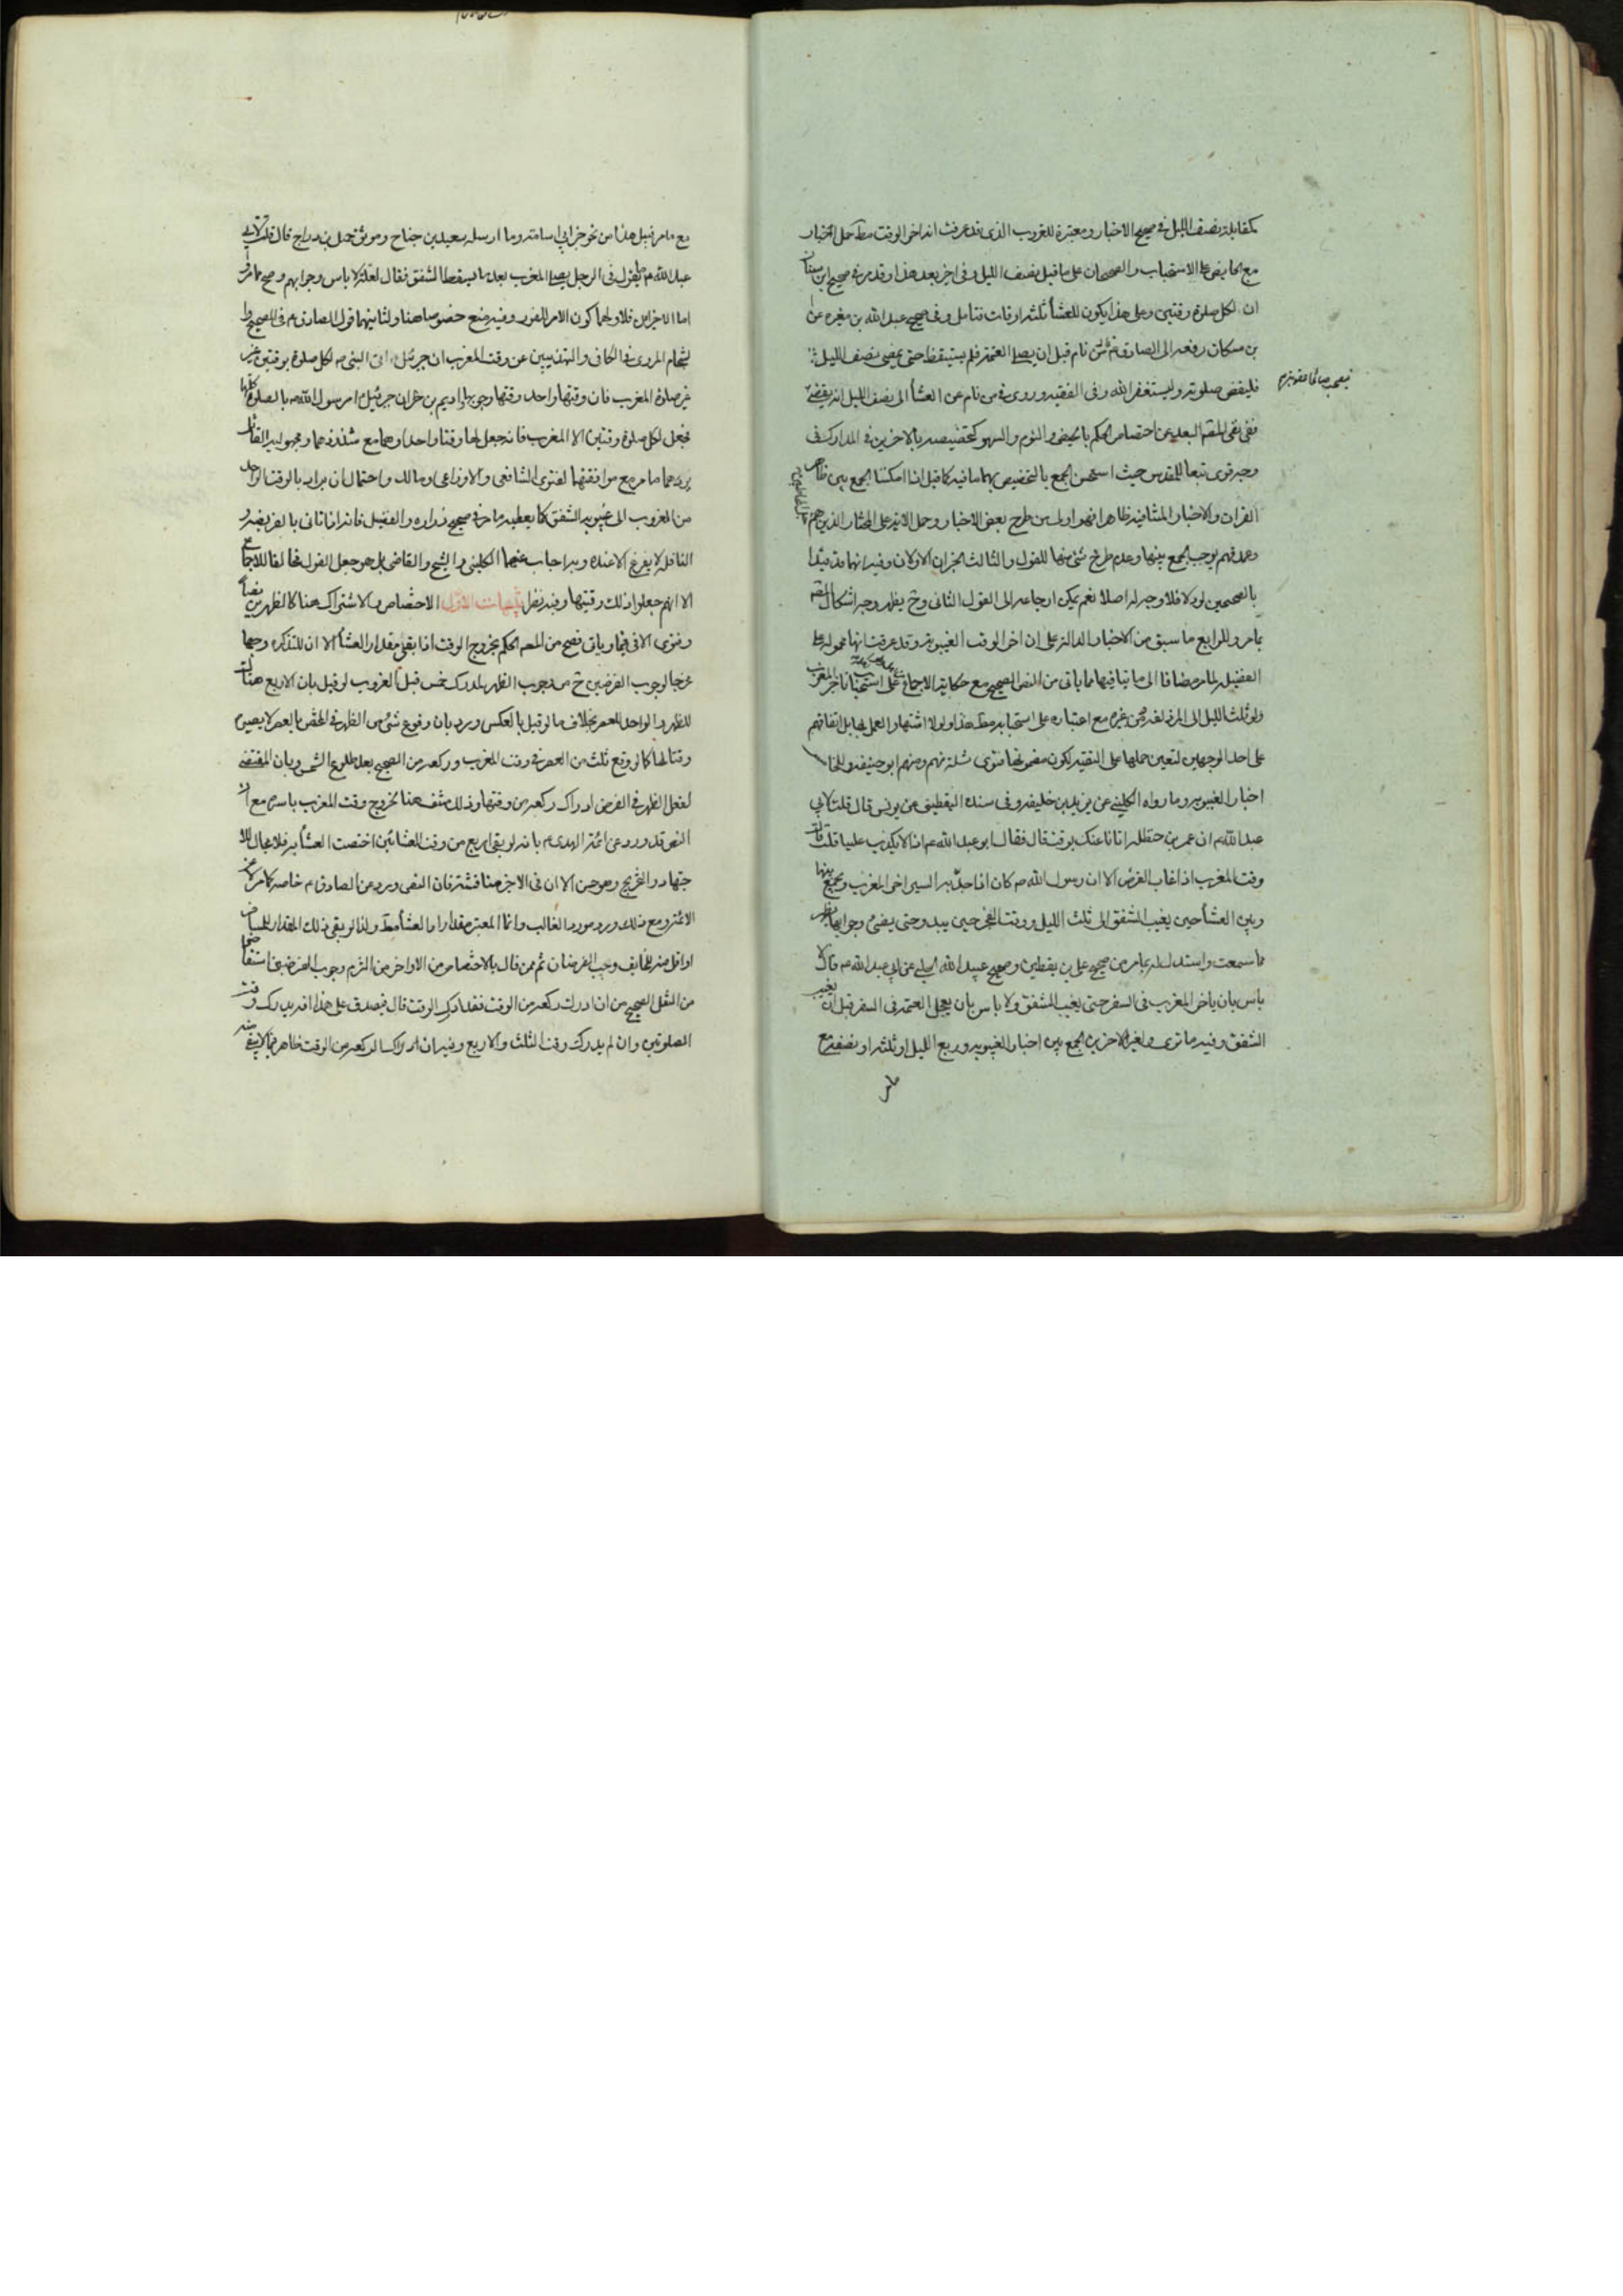 بمقابلة نصف الليل في صحيح الاخبار ومعتبرة للغروب الذي قد عرفت انه اخر الوقت مط حمل الاخبار
مع الحايض على الاستحباب والصحيحان على ما قبل نصف الليل وفي اخر بعد هذا وقد مر في صحيح ابن سنان
ان لكل صلوة وقتين وعلى هذا يكون للعشأ ثلثة اوقات فتامل وفي صحيح عبد الله بن مغيرة عن
بن مسكان رفعه الى الصادق من نام قبل ان يصلي العتمة فلم يستيقظ حتى يمضي نصف الليل
فليقض صلوته وليستغفر الله وفي الفقيه وروى في من نام عن العشأ الى نصف الليل انه يقضي
ويصبح صائما عقوبة
ففي نفي البعد عن اختصاص الحكم بالحيض والنوم والسهو كتخصيصه بالاخرين في المدارك
وجه قوي تبعا للمقدس حيث استحسن الجمع بالتخصيص بهما ما فيه كما قيل اذا امكننا الجمع بين ظاهر
القران والاخبار المتنافية ظاهرا فهو اولى من طرح بعض الاخبار وحمل الاية على المختار الذين هم
وعددهم يوجب الجمع بينها وعدم طرح شئ منها للقول والثالث الخبران الاولان وفيه انهما قد قيدا
بالصحيحين لولاه فلا وجه له اصلا نعم يمكن ارجاعه الى القول الثاني وح يظهر وجه اشكال
بما مر وللرابع ما سبق من الاخبار الدالة على ان اخر الوقت الغيبوبة وقد عرفت انها محمولة على
الفضيلة لما مر مضافا الى ما ينافيها مما ياتي من النص الصحيح مع حكاية الاجماع على استحباب تاخر المغرب
ولو ثلث الليل الى المزدلفة من غيره مع اعتباره على استحبابه مط هذا ولولا اشتهار العمل بها بل اتفاقهم
على احد الوجهين لتعين حملها على التقية لكون مضمونها فتوى ثلثة منهم ومنهم ابو حنيفة
اخبار الغيبوبة وما رواه الكليني عن يزيد بن خليفة وفي سنده اليقطيني عن يونس قال قلت لابي
عبد الله ان عمر بن حنظلة اتانا عنك بوقت قال فقال ابو عبد الله اذا لا يكذب علينا قلت قال
وقت المغرب اذا غاب القرص الا ان رسول الله كان اذا جد به السير اخر المغرب ويجمع بينها
وبين العشأ حين يغيب الشفق الى ثلث الليل ووقت الفجر حين يبدو حتى يضئ وجوابها يظهر
مما سمعت واستدل له بما مر من صحيح علي بن يقطين وصحيح عبيد الله الحلبي عن ابي عبد الله قال لا
باس بان ياخر المغرب في السفر حتى يغيب الشفق ولا باس بان يعجل العتمة في السفر قبل ان يغيب
الشفق وفيه ما ترى ولغيره الاخرين الجمع بين اخبار الغيبوبة وربع الليل او ثلثه او نصفه مع
مع ما مر قبيل هذا من نحو خبر ابي اسامة وما ارسله سعيد بن جناح وموثق جميل بن دراج قال قلت لابي
عبد الله ما تقول في الرجل يصلي المغرب بعد ما يسقط الشفق فقال لعلة لا باس وجوابهم وضح مما مر
اما الاخيران فلاولهما كون الامر للفور وفيه منع خصوصا هنا ولثانيهما قول الصادق في الصحيح
لشحام المروي في الكافي والتهذيبين عن وقت المغرب ان جبرئيل اتى النبي لكل صلوة بوقتين غير
غير صلوة المغرب فان وقتها واحد وقتها وجوبها واديم بن حر ان جبرئيل امر رسول الله بالصلوة كلها
فجعل لكل صلوة وقتين الا المغرب فانه جعل لها وقتا واحدا وهما مع شذوذهما ومجهولية القائل
يردهما ما مر مع موافقتهما لفتوى الشافعي والاوزاعي ومالك واحتمال ان يراد بالوقت الواحد
من الغروب الى غيبوبة الشفق كما يعطيه ما مر في صحيح زراره والفضيل فانه اذا اتى بالفريضة و
النافلة لا يفرغ الا عنده وبه اجاب عنهما الكليني والشيخ والقاضي بل هو جعل القول مخالفا للاجماع
الا انهم جعلوا ذلك وقتيها وفيه نظر تنبيهات الاول الاختصاص والاشتراك هنا كالظهرين نصا
وفتوى الا في فيما وياتي فصح من المص الحكم بخروج الوقت اذا بقي مقدار العشأ الا ان للتذكرة وجها
مخرجا لوجوب الفرضين ح من وجوب الظهر لمدرك خمس قبل الغروب لو قيل بان الاربع هناك
للظهر والواحد للعصر بخلاف ما لو قيل بالعكس ورد بان وقوع شئ من الظهر في المختص بالعصر لا يصير
وقتا لها كما لو وقع ثلث من العصر في وقت المغرب وركعة من الصبح بعد طلوع الشمس وبان المقتضي
لفعل الظهر في الفرض ادراك ركعة من وقتها وذلك منتف هنا لخروج وقت المغرب باسره مع
النص قد ورد عن ائمة الهدى بانه لو بقي اربع من وقت العشائين اختصت العشأ به فلا مجال للا
جتهاد والتخريج وهو حسن الا ان في الاخر مناقشة فان النص ورد عن الصادق خاصه كما مر لا عن
الائمة ومع ذلك ورد مورد الغالب وانما المعتبر مقدار اداء العشأ مط ولذا لو بقي ذلك المقدار للمسافر
او اقل منه للخايف وجب الفرضان ثم ممن قال بالاختصاص من الاواخر من التزم وجوب الفرضين
من النقل الصحيح من ان ادرك ركعة من الوقت فقد ادرك الوقت قال فيصدق على هذا انه يدرك وقت
الصلوتين وان لم يدرك وقت الثلث والاربع وفيه ان ادراك الركعة من الوقت ظاهر